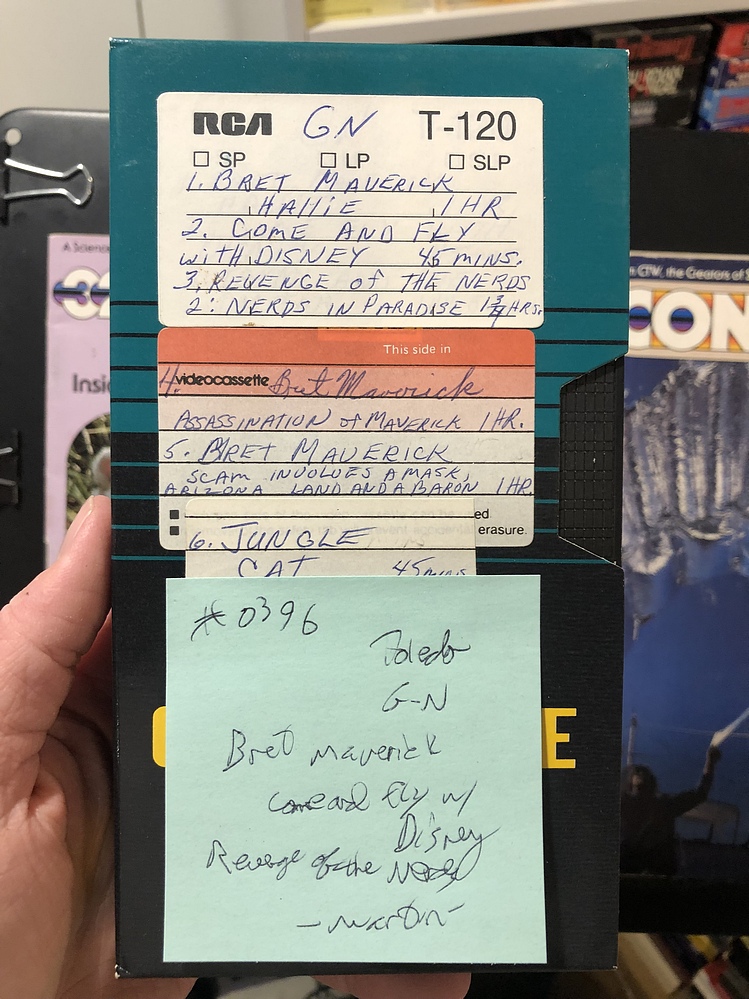 RCA GN T-120
SP LP SLP
1. BRET MAVERICK
HALLIE 1 HR
2. COME AND FLY
WITH DISNEY 45 MINS.
3. REVENGE of THE NERDS
2: NERDS IN PARADISE 1 3/4 HRS.
This side in
4. videocassette Bret Maverick
ASSASSINATION of MAVERICK 1 HR.
5. BRET MAVERICK
SCAM INVOLVES A MASK,
ARIZONA LAND AND A BARON 1 HR.
ed
erasure.
6. JUNGLE
CAT 45 MINS
#0396
Toledo
G-N
Bret Maverick
Come and Fly w/
Disney
Revenge of the Nerds
-Martin-
E
A Science
32
Insi
CTW, the Creators of S
CON